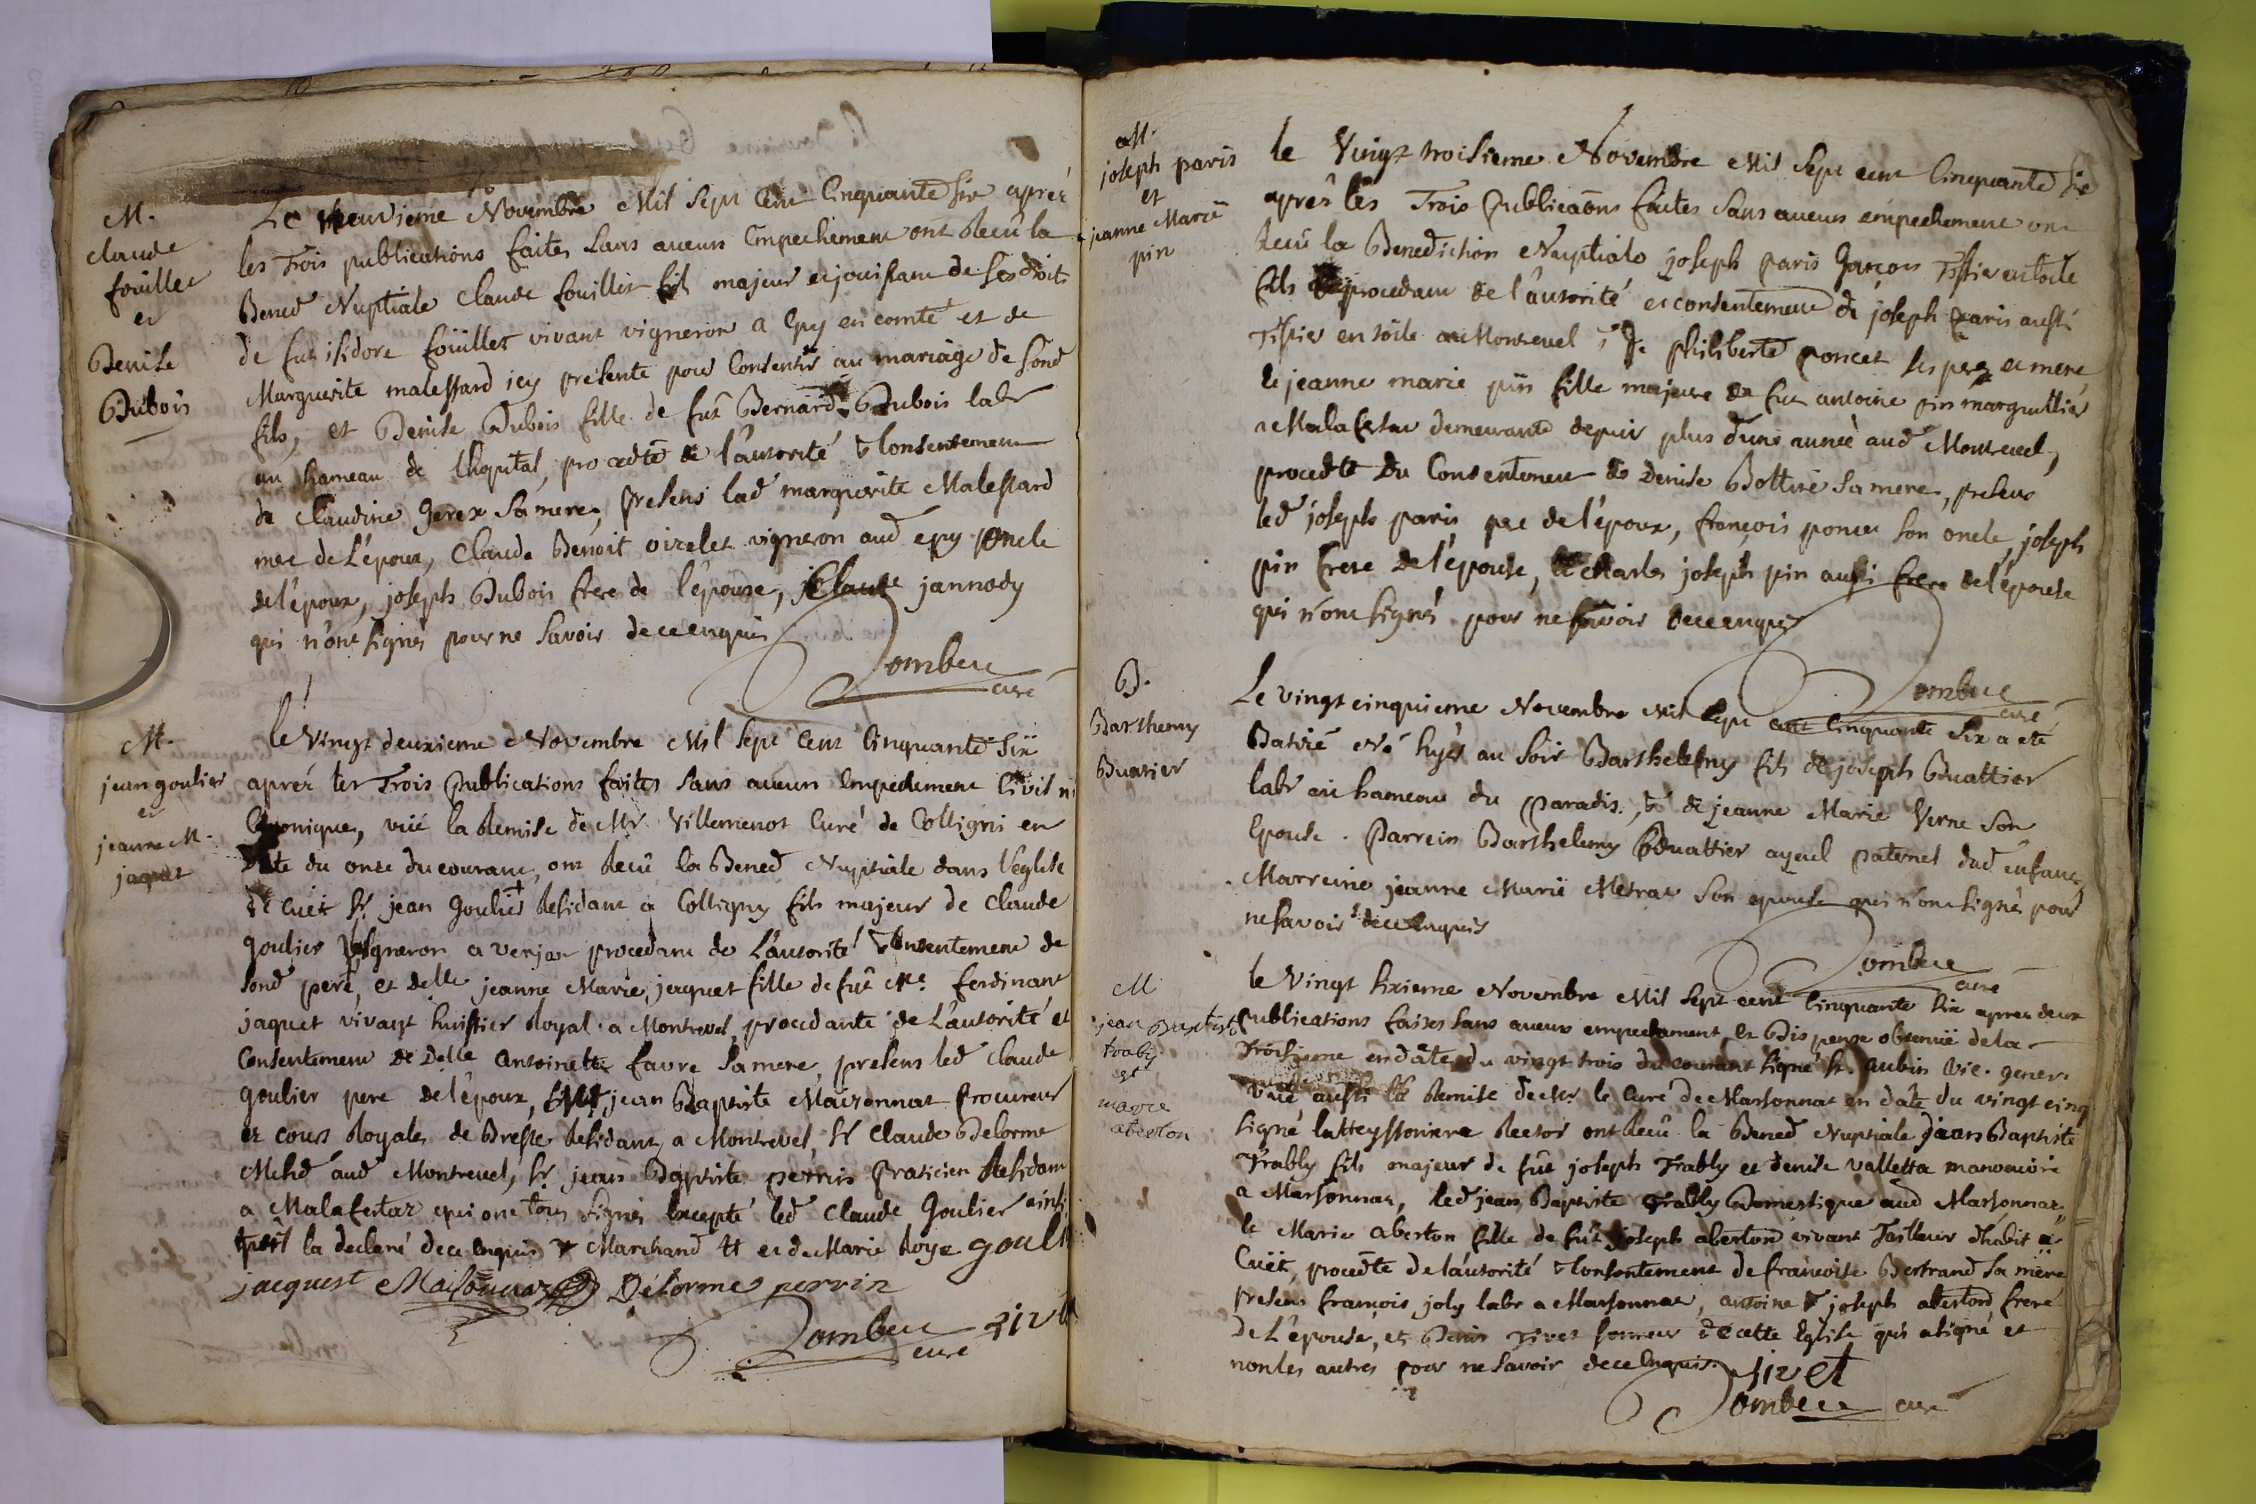 M.
claude
fouillet
et
Denise
Dubois
Le neuvieme Novembre Mil Sept Cent Cinquante Six aprez
les Trois publications faites Sans aucun Empechement ont Recû la
Bened Nuptiale Claude fouillet fils majeur et jouissant de ses droits
de fut isidore foüillet vivant vigneron a Epy en comté et de
Marguerite malessard icy presente pour Consentir au mariage de Sond
fils, et Denise Dubois fille de fut Bernard Dubois labr
au hameau de lhopital, procedte de l'autorité & Consentement
de Claudine Gerex Sa mere, presens lad marguerite Malessard
mere de L'epoux, Claude Benoit oizelet vigneron aud epy oncle
del'époux, joseph Dubois frere de l'épouse, Claude jannody
qui n'ont signés pour ne Savoir de ce enquis
Lombere
curé
M.
jean goulier
et
jeanne M.
jaquet
le Vingt deuxieme Novembre Mil Sept Cent Cinquante Six
aprez les Trois Publications faites Sans aucun Empechement Civil ni
Canonique, vüe la Remise de Mr. Villemenot Curé de Colligni en
Date du onze du courant, ont Recû la Bened Nuptiale dans l'église
de Cuët Sr. jean Goulier Residant a Colligny fils majeur de Claude
goulier vigneron a verjon procedant de L'autorité & Consentement de
Sond pere, et Delle jeanne Marie jaquet fille de fut Me. ferdinant
jaquet vivant huissier Royal a Montrevel, procedante de L'autorité et
Consentement de Delle antoinette favre Sa mere, presens led Claude
goulier pere de l'époux, jean Baptiste Maisonnat Procureur
es cours Royales de Bresse Residant a Montrevel, Sr Claude Delorme
Mchd aud Montrevel, Sr. jean Baptiste perrin Praticien Residant
a Malafertaz qui ont tous signés Excepté led Claude Goulier ainsi
quil la declaré de ce Enquis & Marchand et de Marie Roye goulit
jacquet Maisonnat Delorme perrin
Lombere
curé
M.
joseph paris
et
jeanne Marie
pin
le Vingt troisieme Novembre Mil Sept cent Cinquante Six
aprés les Trois Publicaõns faites Sans aucun empechement ont
Recû la Benediction Nuptiale joseph paris Garçon Tissier en toile
fils procedant de l'autorité et consentement de joseph paris aussi
Tissier en toile a Montrevel, & philiberte poncet ses pere et mere
& jeanne marie pin fille majeure de fut antoine pin marguillier
a Malafertaz demeurante depuis plus dune année aud Montrevel,
procedte du Consentement de Denise Bottier Sa mere, presens
led joseph paris pere de l'époux, françois poncet Son oncle, joseph
pin frere de l'épouse, Charles joseph pin aussi frere de l'épouse
qui n'ont signés pour ne Savoir de ce enquis
Lombere
curé
B.
Barthemy
Buatier
Le vingt cinquieme Novembre Mil Sept cent Cinquante Six a eté
Batizé Né hyer au Soir Barthelemy fils de joseph Buattier
labr au hameau du Paradis, & de jeanne Marie Verne Son
Epouse. Parrein Barthelemy Buattier ayeul paternel dud enfant,
Marreine jeanne Marie Metraz Son epouse qui n'ont signés pour
ne Savoir de ce Enquis
Lombere
curé
M
jean Baptiste
trably
et
marie
aberton
le Vingt Sixieme Novembre Mil Sept cent Cinquante Six aprez deux
publications faites Sans aucun empechement, et Dispense obtenüe de la
Troisieme en date du vingt trois du courant signé St. aubin Vic. gener.
Vüe aussi la Remise de Mr. le Curé de Marsonnat en date du vingt cinq
signé latteyssonniere Rector ont Recû la Bened Nuptiale jean Baptiste
Trably fils majeur de fut joseph Trably et denise valletta manoeuvre
a Marsonnat, led jean Baptiste Trably Domestique aud Marsonnat,
& Marie aberton fille de fut joseph aberton vivant Tailleur dhabit a
Cuët, procedte de l'autorité & Consentement de francoise Bertrand Sa mere
presens françois joly labr a Marsonnat, antoine & joseph aberton frere
de L'épouse, et Denis Tivet Sonneur de cette Eglise qui a signé et
non les autres pour ne Savoir de ce Enquis. Tivet
Lombere curé